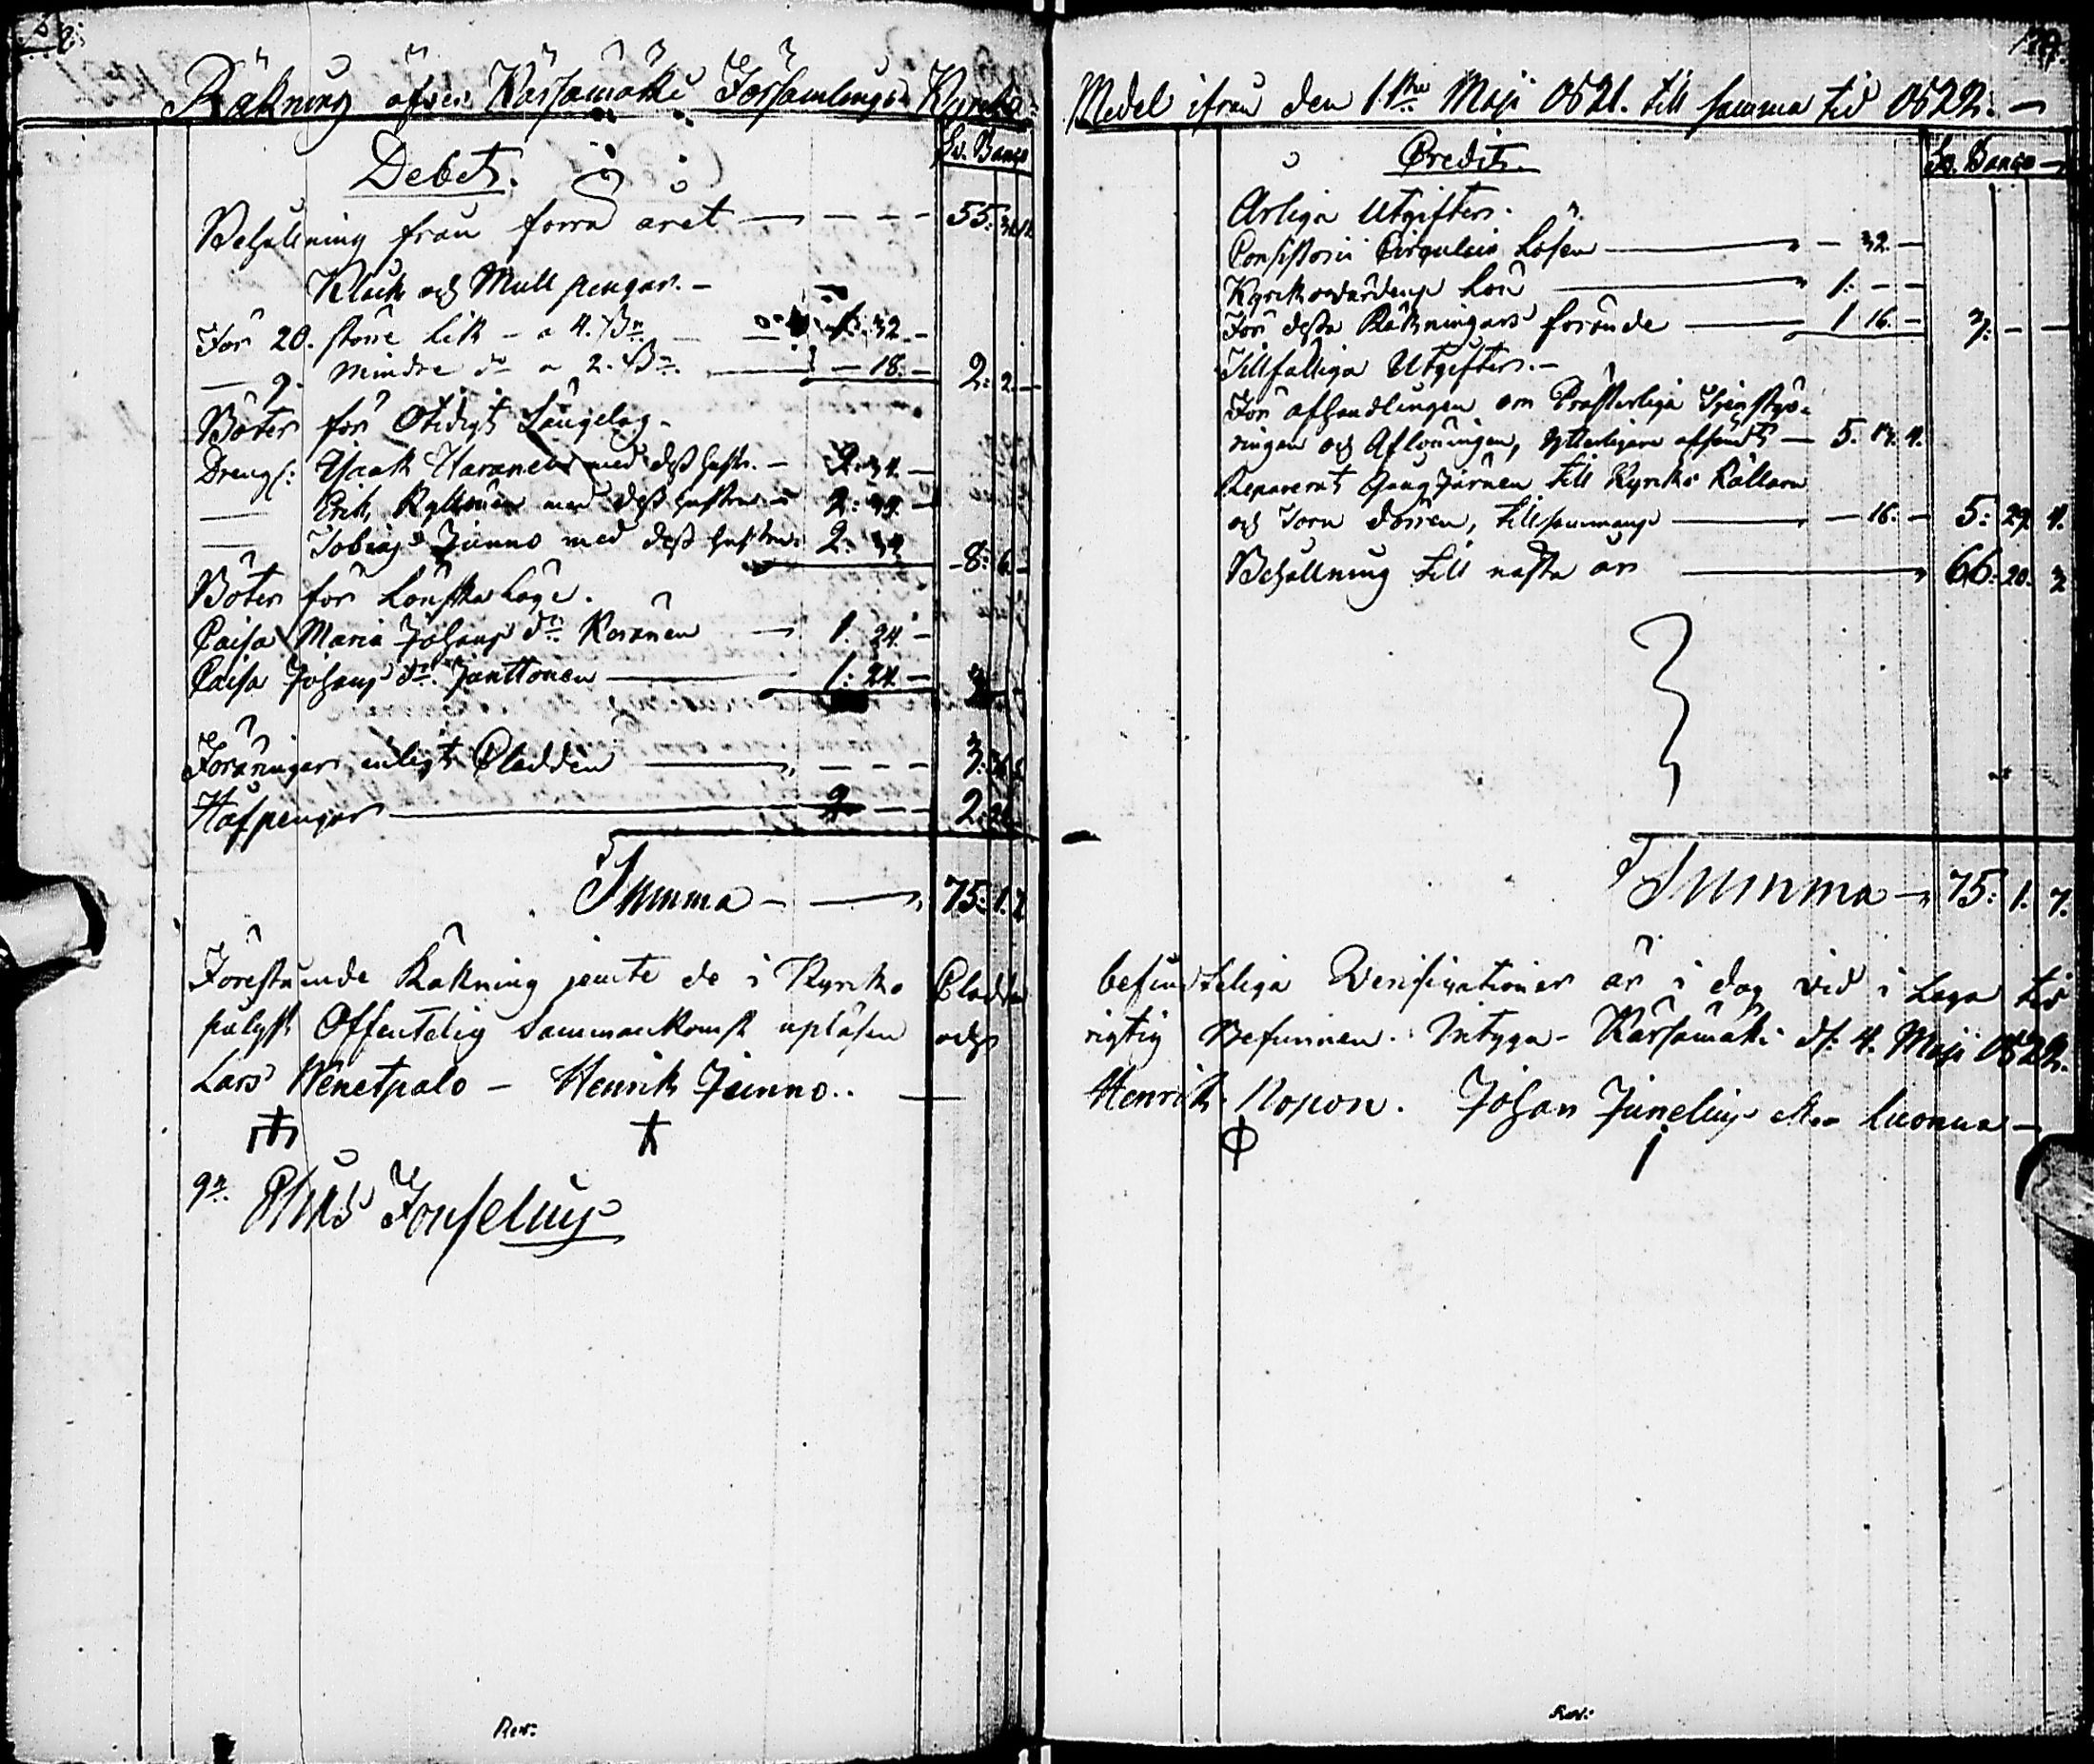 Räkning öfver Kärsämäki Församlings Kyrko
Debet. Sv. Banco
Behållning från förra året — — — 55:
Klock och Mull pengar. —
För 20. större Lik — a 4. ßr — 1: 32. —
— 9. mindre do a 2. ßr. — — 18. — 2: 2. —
Böter för Otidigt Sängelag.
Drengs: Isaak Haranen med dess hustr. — 2. 34. —
— Erik Kyllönen med dess hustru — 2:
— Tobias Junno med dess hustru 2: 34 8: 6. —
Böter för Lönska Läge.
Caisa Maria Johans dr Keränen — 1. 24. —
Caisa Johans dr. Jänttönen — 1: 24. — 3
Föräringar enligt Cladden — — — — 3:
Håfpengar — — — 2:
Summa — — 75: 1. 7
Förestående Räkning jemte de i Kyrko Cladden
pålyst Offentelig Sammankomst upläsen och
Lars Wenetpalo — Henrik Junno. —
Elias Fonselius
Rev:
Medel ifrån den 1ste Maji 1821. till samma tid 1822. —
Credit. Sv. Banco —
Årliga Utgifter.
Consistorii Circulair Lösen — — 32. —
Kyrkovärdens Lön — 1: — —
För dessa Räkningars förande — 1. 16. — 3. — —
Tillfälliga Utgifter. —
För afhandlingen om Prästerliga
ringen och Aflöningen, ytterligare afsändt — 5. 13. 4.
Reparerat Gång Järnen till Kyrko Källarn
och Torn dörren, tillsammans — — 16. — 5: 29. 4.
Behållning till nästa år — 66: 20. 3
Summa — 75: 1. 7.
befindteliga Verificationer är i dag vid i Laga tid
rigtig Befunnen. Intyga — Kärsämäki d: 4. Maji 1822.
Henrik Kopon. Johan Junelius Luonua —
Rev: